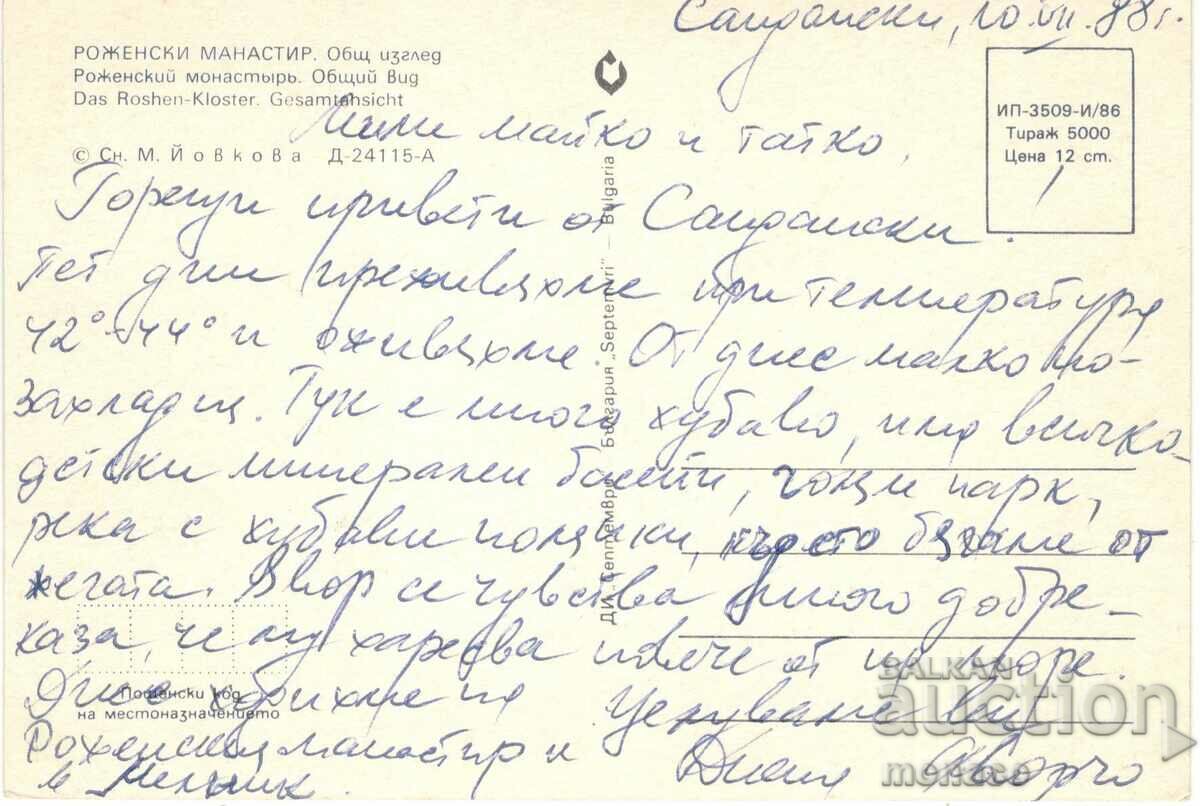 Сандански, 10.VII.88 г.
РОЖЕНСКИ МАНАСТИР. Общ изглед
Роженский монастырь. Общий вид
Das Roshen-Kloster. Gesamtansicht
© Сн. М. Йовкова Д-24115-А
ИП-3509-И/86
Тираж 5000
Цена 12 ст.
Мили майко и татко,
Горещи привети от Сандански.
Пет дни преживяхме при температура
42°-44° и оживяхме. От днес малко по-
захладня. Тук е много хубаво, има всичко-
детски минерални басейни, парк,
река с хубави полянки, където бягаме от
жегата. Явор се чувства много добре -
каза, че му харесва повече от на море.
Днес ходихме на
Роженския манастир и
в Мелник.
Целуваме ви
Диана Яворчо
ДИ „Септември" България „Septemvri" – Bulgaria
Пощенски код
на местоназначението
BALKAN
auction
monaco